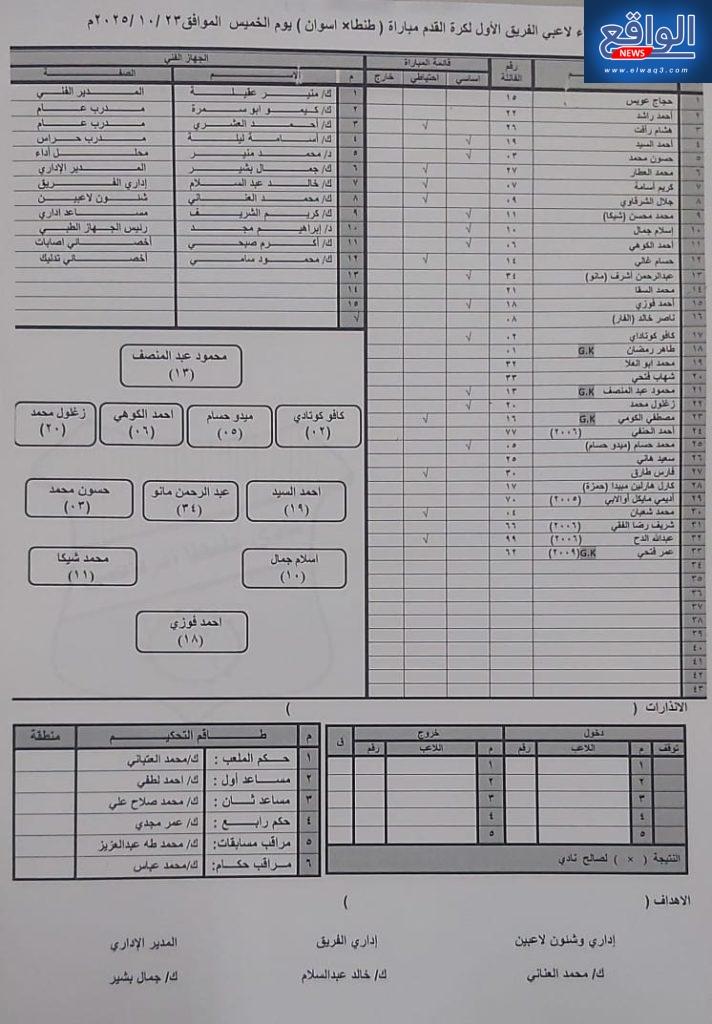 الواقع
NEWS
www.elwaq3.com
لاعبي الفريق الأول لكرة القدم مباراة ( طنطا× اسوان ) يوم الخميس الموافق٢٣ /١٠ /٢٠٢٥م
رقم الفانلة
قائمة المباراة
اساسي احتياطي خارج
١ حجاج عويس ١٥
٢ أحمد راشد ٢٢
٣ هشام رأفت ٢٦ √
٤ أحمد السيد ١٩ √
٥ حسون محمد ٠٣ √
٦ محمد العطار ٢٧ √
٧ كريم أسامة ٠٧ √
٨ جلال الشرقاوي ٠٩ √
٩ محمد محسن (شيكا) ١١ √
١٠ إسلام جمال ١٠ √
١١ أحمد الكوهي ٠٦ √
١٢ حسام غالي ١٤ √
١٣ عبدالرحمن أشرف (مانو) ٣٤ √
١٤ محمد السقا ٢١
١٥ أحمد فوزي ١٨ √
١٦ ناصر خالد (الفار) ٠٨
١٧ كافو كوناداي ٠٢ √
١٨ طاهر رمضان G.K ٠١
١٩ محمد ابو العلا ٣٢
٢٠ شهاب فتحي ٣٣
٢١ محمود عبد المنصف G.K ١٣ √
٢٢ زغلول محمد ٢٠ √
٢٣ مصطفي الكومي G.K ١٦ √
٢٤ أحمد الحنفي (٢٠٠٦) ٧٧
٢٥ محمد حسام (ميدو حسام) ٠٥ √
٢٦ سعيد هاني ٢٥
٢٧ فارس طارق ٣٠ √
٢٨ كارل هارلين مبيدا (حمزة) ١٧
٢٩ أديمي مايكل أوالابي (٢٠٠٥) ٧٠
٣٠ محمد شعبان ٠٤ √
٣١ شريف رضا الفقي (٢٠٠٦) ٦٦
٣٢ عبدالله الدح (٢٠٠٦) ٩٩ √
٣٣ عمر فتحي G.K(٢٠٠٩) ٦٢
٣٤
٣٥
٣٦
٣٧
٣٨
٣٩
٤٠
٤١
٤٢
٤٣
الجهاز الفني
م الاسم الصفة
١ ك/ منير عقيلة المدير الفني
٢ ك/ كيمو ابو سمرة مدرب عام
٣ ك/ أحمد العشري مدرب عام
٤ ك/ أسامة ليلة مدرب حراس
٥ د/ محمد منير محلل أداء
٦ ك/ جمال بشير المدير الإداري
٧ ك/ خالد عبد السلام إداري الفريق
٨ ك/ محمد العناني شئون لاعبين
٩ ك/ كريم الشريف مساعد اداري
١٠ د/ إبراهيم مجد رئيس الجهاز الطبي
١١ ك/ أكرم صبحي أخصائي إصابات
١٢ ك/ محمود سامي أخصائي تدليك
١٣
١٤
١٥
√
محمود عبد المنصف
(١٣)
كافو كوتادي
(٠٢)
ميدو حسام
(٠٥)
احمد الكوهي
(٠٦)
زغلول محمد
(٢٠)
احمد السيد
(١٩)
عبد الرحمن مانو
(٣٤)
حسون محمد
(٠٣)
اسلام جمال
(١٠)
محمد شيكا
(١١)
احمد فوزي
(١٨)
الانذارات ( )
دخول خروج
توقف م اللاعب رقم م اللاعب رقم ق
١ ١
٢ ٢
٣ ٣
٤ ٤
٥ ٥
النتيجة ( × ) لصالح نادي
م طاقم التحكيم منطقة
١ حكم الملعب : ك/محمد العتباني
٢ مساعد أول : ك/ احمد لطفي
٣ مساعد ثان : ك/ محمد صلاح علي
٤ حكم رابع : ك/ عمر مجدي
٥ مراقب مسابقات: ك/ محمد طه عبدالعزيز
٦ مراقب حكام: ك/محمد عباس
الاهداف ( )
إداري وشئون لاعبين إداري الفريق المدير الإداري
ك/ محمد العناني ك/ خالد عبدالسلام ك/ جمال بشير